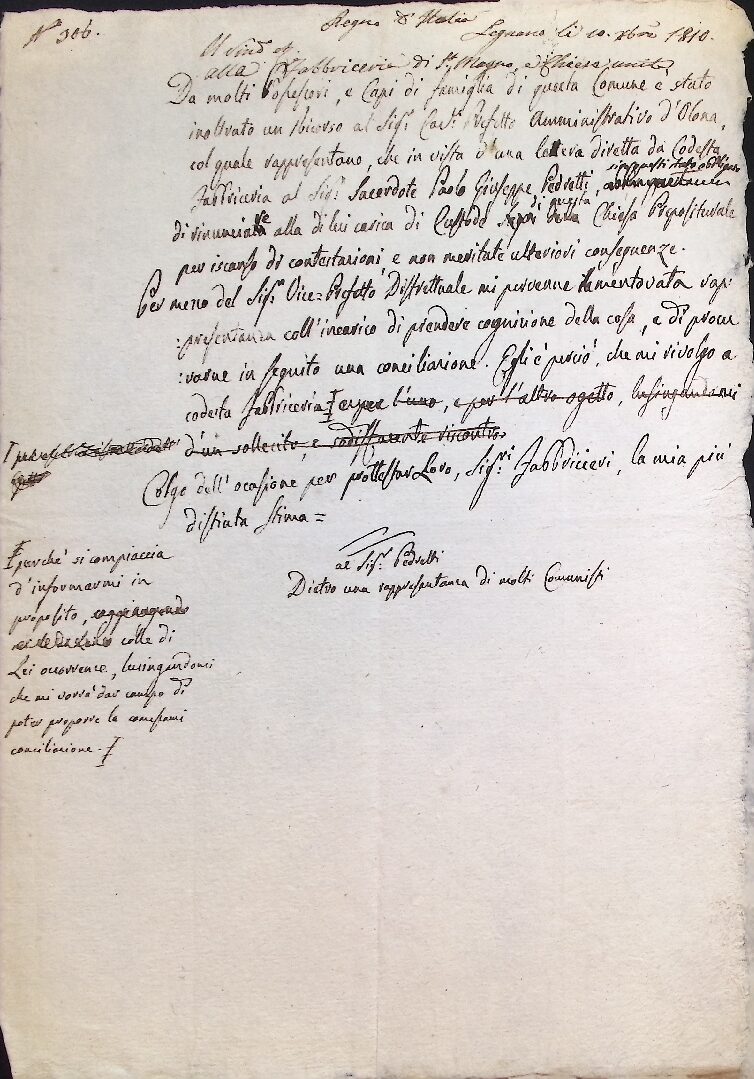 N° 306.
Regno d'Italia
Legnano li 10. xbre 1810.
Il Sind°
alla Fabbriceria di St. Magno, e Chiese unite
Da molti Possessori, e Capi di famiglia di questa Comune è stato
inoltrato un Ricorso al Sigr. Cavr. Prefetto Amministrativo d'Olona,
col quale rappresentano, che in vista d'una lettera diretta da Codesta
Fabbriceria al Sigr. Sacerdote Paolo Giuseppe Pedretti, siasi stato obbligato
di rinunciare alla di lui carica di Custode di questa Chiesa Prepositurale
per iscanso di contestazioni e non meritate ulteriori conseguenze.
Per meno del Sigr. Vice=Prefetto Distrettuale mi pervenne la mentovata rap:
:presentanza coll'incarico di prendere cognizione della cosa, e di procu
:rarne in seguito una conciliazione. Egli è perciò, che mi rivolgo a
codesta Fabbriceria e per l'uno, e per l'altro ogetto, lusingandomi
d'un sollecito, e sodisfacente riscontro.
Colgo dell'ocasione per prottestar Loro, Sigri. Fabbricieri, la mia più
distinta stima =
perchè si compiaccia
d'informarmi in
proposito, colle di
Lei ocorrenze, lusingandomi
che mi vorrà dar campo di
poter proporre la
conciliazione.
al Sigr. Pedretti
Dietro una rappresentanza di molti Comunisti